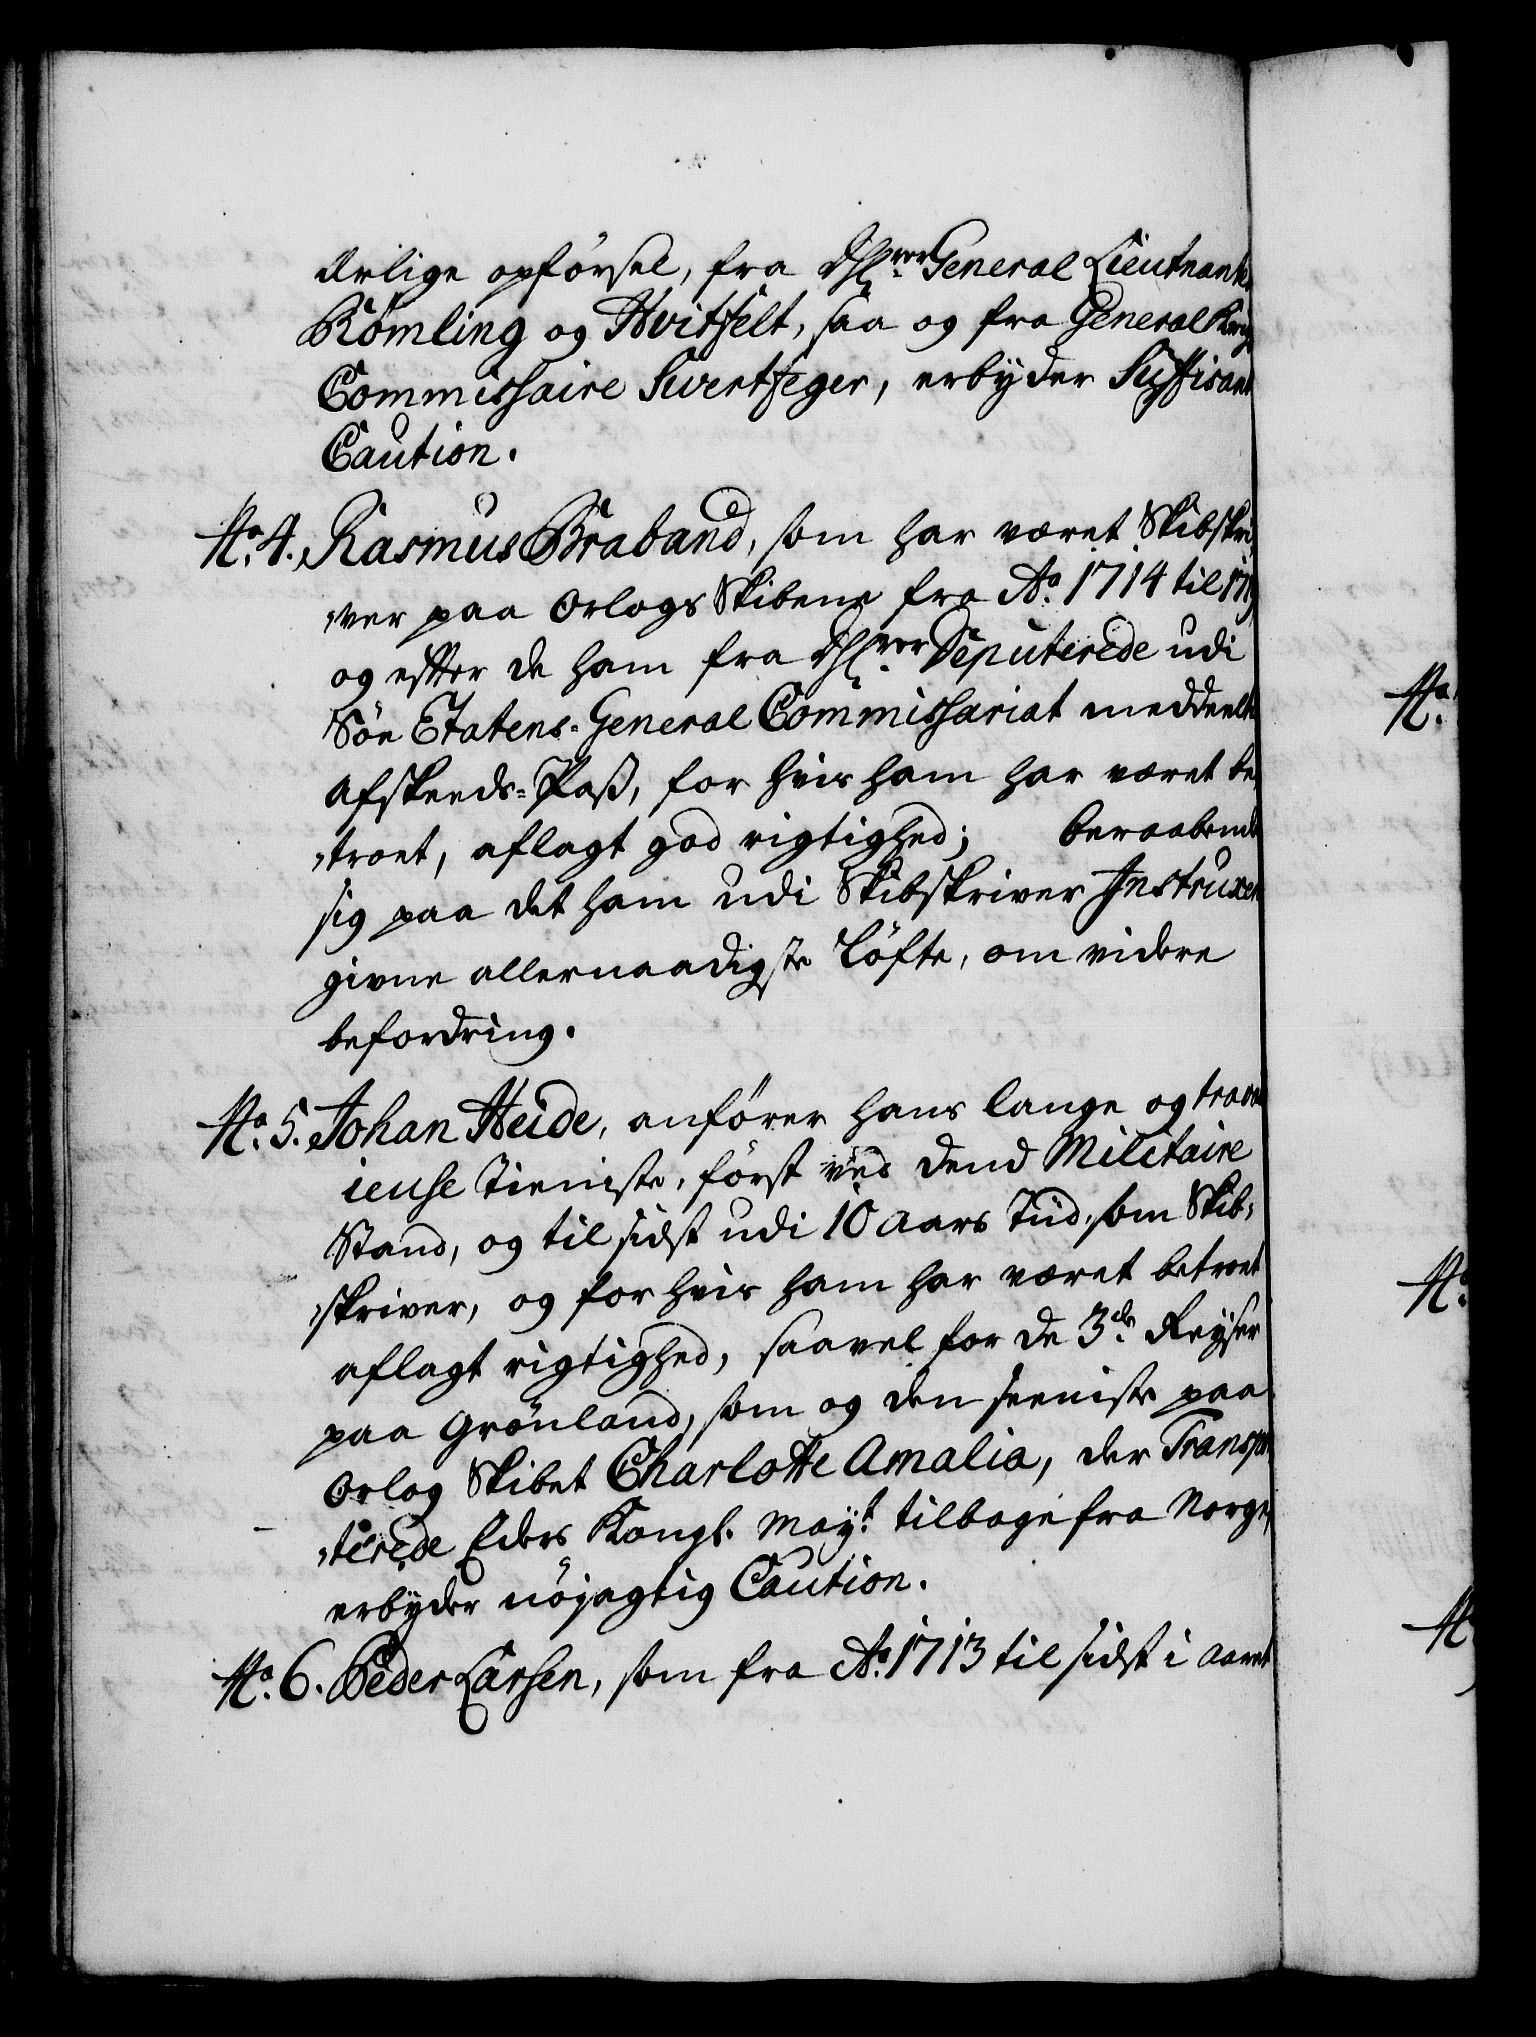 Ærlige opförsel, fra Hrer General Lieutnanter
Römling og Hvitfelt, saa og fra General Krigs
Commissaire Sivertseger, erbyder Suffisant
Caution.
No. 4. Rasmus Braband, som har været Skibskri-
-ver paa Orlogs Skibene fra Ao. 1714 til
og efter de ham fra Hrer Deputerede udi
Söe Etatens-General Commissariat meddeelte
Afskeeds-Pass, for hvis ham har været be-
-troet, aflagt god rigtighed; beraabende
sig paa det ham udi Skibskriver Instruxen
givne allernaadigste Löfte, om videre
befordring.
No. 5. Johan Heide, anförer hans lange og trava-
ieuse Tieniste, först ved dend Militaire
Stand, og til sidst udi 10 Aars Tiid, som Skib-
-skriver, og for hvis ham har været betroet
aflagt rigtighed, saavel for de 3de Reyser
paa Grönland, som og den seeniste paa
Orlog Skibet Charlotte Amalia, der Transpor-
-terede Eders Kongl. Mayt. tilbage fra Norge,
erbyder nöjagtig Caution.
No. 6. Peder Larsen, som fra Ao. 1713 til sidst i Aaret
No.
No.
No.